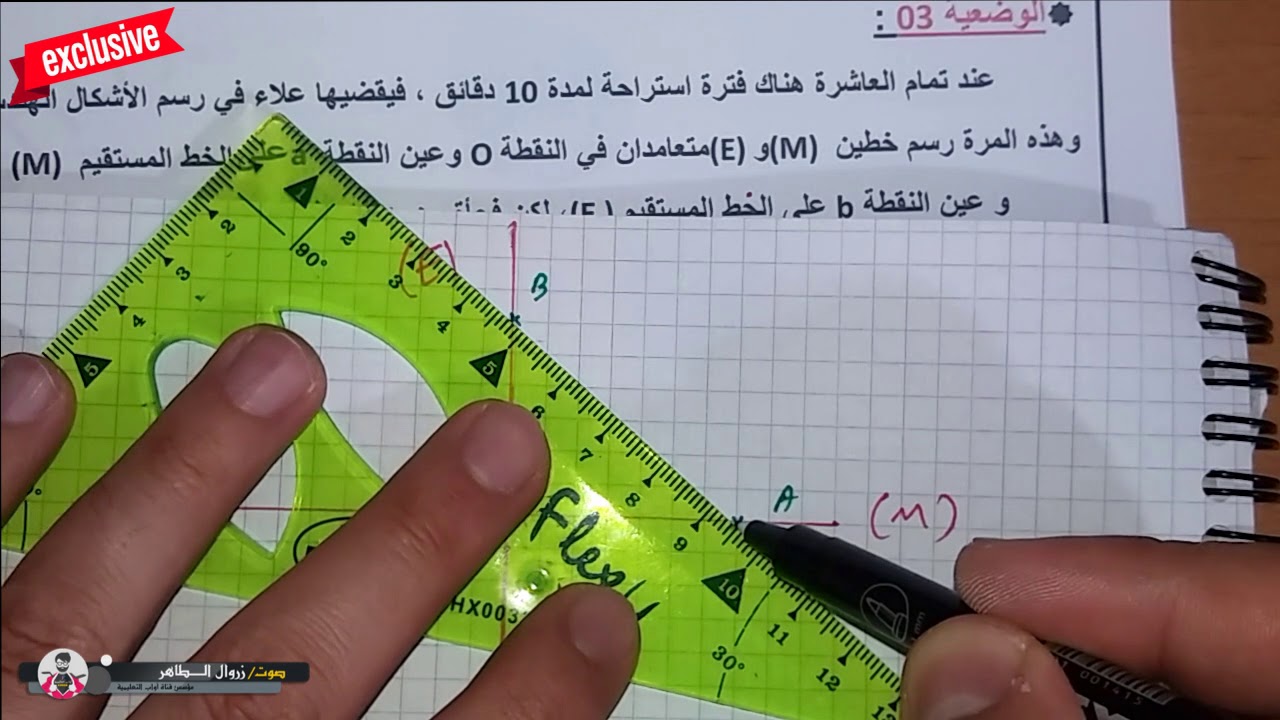 exclusive
الوضعية 03 :
عند تمام العاشرة هناك فترة استراحة لمدة 10 دقائق ، فيقضيها علاء في رسم الأشكال
وهذه المرة رسم خطين (M)و (E)متعامدان في النقطة O وعين النقطة a على الخط المستقيم (M)
و عين النقطة b على الخط المستقيم (E)، لكن
(E)
B
A
(M)
1 2 3 4 5 6 7 8 9 10 11 12 13
2 3 4 5
90°
Flex
30°
صوت/ زروال الطاهر
مؤسس: قناة اولاب التعليمية